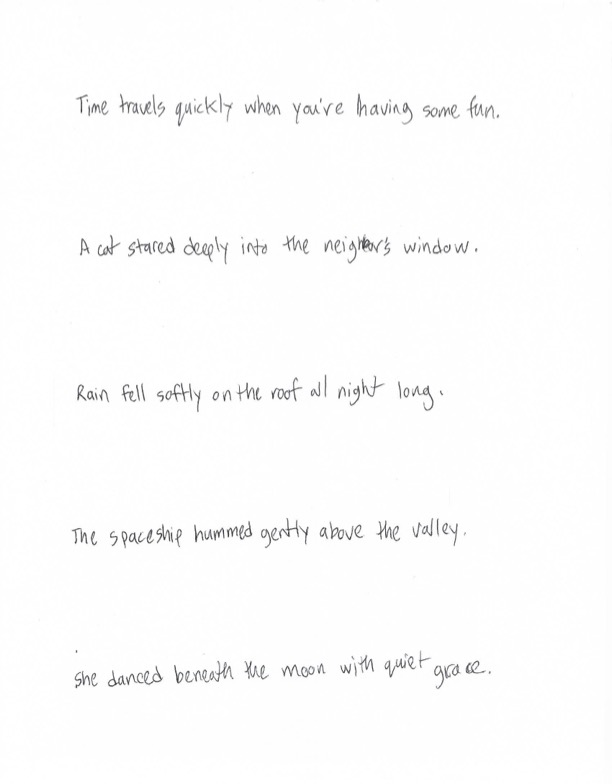 Time travels quickly when you're having some fun.
A cat stared deeply into the neighbor's window.
Rain fell softly on the roof all night long.
The spaceship hummed gently above the valley.
She danced beneath the moon with quiet grace.